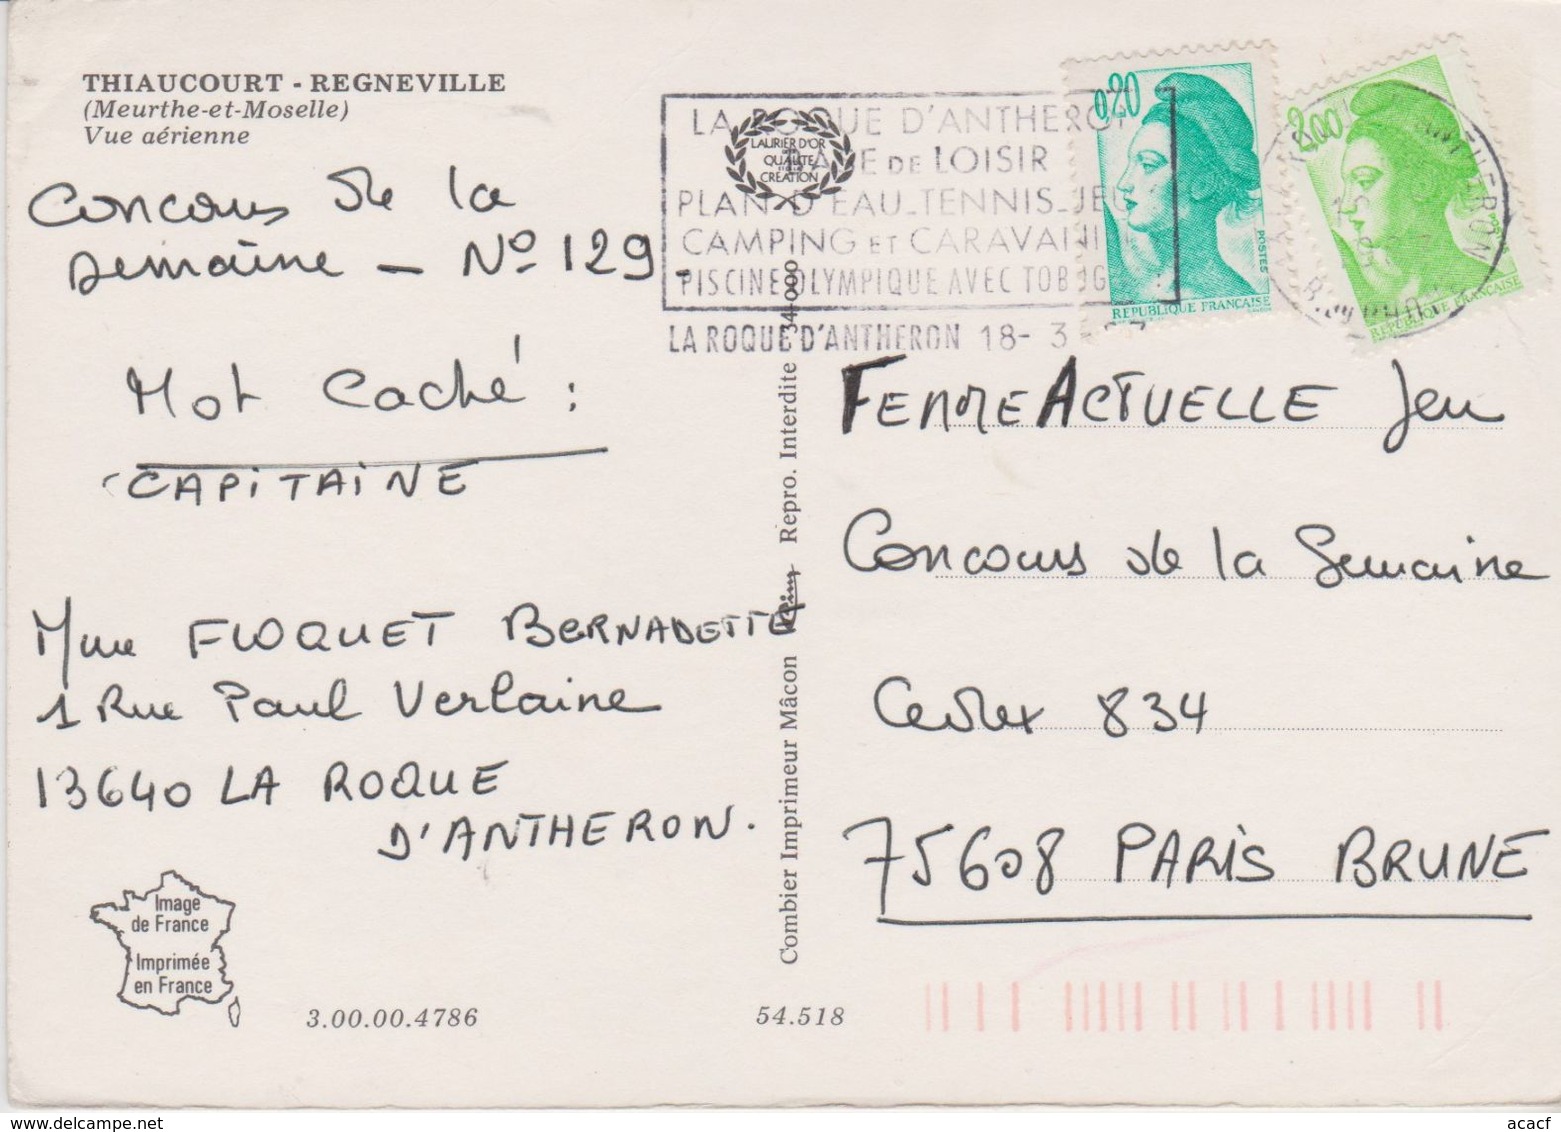 THIAUCOURT - REGNEVILLE
(Meurthe-et-Moselle)
Vue aérienne
Concours de la
semaine - N° 129 -
Mot Caché :
CAPITAINE
Mme FLOQUET BERNADETTE
1 Rue Paul Verlaine
13640 LA ROQUE
D'ANTHERON.
Image
de France
Imprimée
en France
3.00.00.4786
54.518
Combier Imprimeur Mâcon Repro. Interdite 34-000
LAURIER D'OR
QUALITÉ
CRÉATION
LA ROQUE D'ANTHERON
BASE DE LOISIR
PLAN D'EAU_TENNIS_JEU
CAMPING ET CARAVANI
PISCINE OLYMPIQUE AVEC TOBOG
LA ROQUE D'ANTHERON 18- 3
0,20
POSTES
REPUBLIQUE FRANÇAISE
2,00
REPUBLIQUE FRANÇAISE
FEMME ACTUELLE Jeu
Concours de la Semaine
Cedex 834
75608 PARIS BRUNE
delcampe.net
acacf